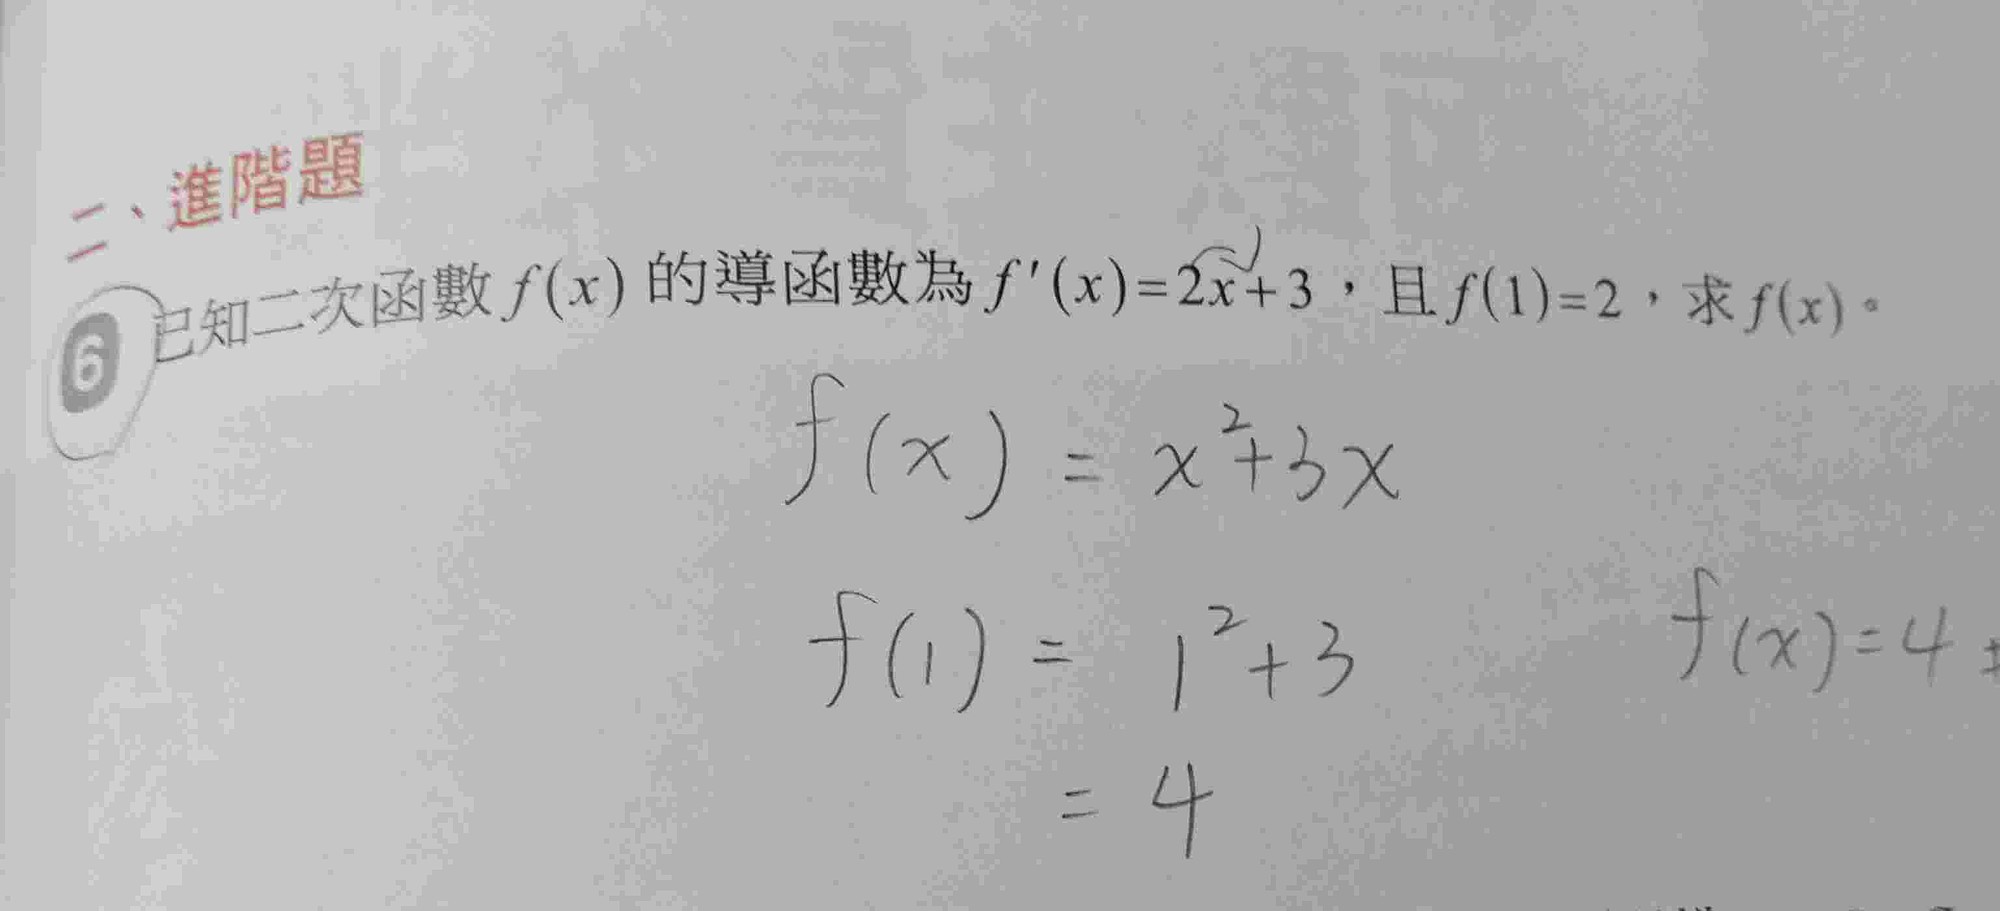 二、進階題
6 已知二次函數 f(x) 的導函數為 f'(x)=2x+3，且 f(1)=2，求 f(x)。
f(x) = x²+3x
f(1) = 1²+3
f(x)=4
= 4